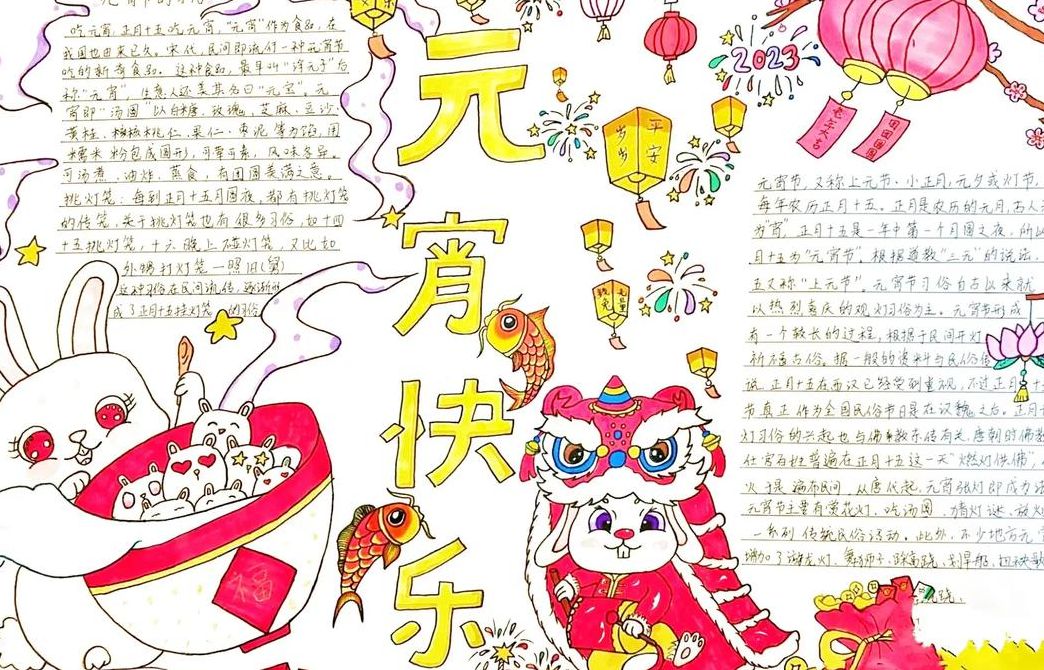 元宵快乐
吃元宵,正月十五吃元宵,“元宵”作为食品,在
我国也由来已久。宋代,民间即流行一种元宵节
吃的新奇食品。这种食品,最早叫“浮元子”后
称“元宵”,生意人还美其名曰“元宝”。元
宵即“汤圆”以白糖、玫瑰、芝麻、豆沙、
黄桂、核桃仁、果仁、枣泥等为馅,用
糯米粉包成圆形,可荤可素,风味各异。
可汤煮、油炸、蒸食,有团圆美满之意。
挑灯笼:每到正月十五月圆夜,都有挑灯笼
的传统,关于挑灯笼也有很多习俗,如十四
十五挑灯笼,十六晚上碰灯笼,又比如
外甥打灯笼—照旧(舅)
这种习俗在民间流传,逐渐形
成了正月十五挂灯笼的习俗
平安
岁岁
2023
团团圆圆
元宵节,又称上元节、小正月,元夕或灯节,
每年农历正月十五。正月是农历的元月,古人
为“宵”,正月十五是一年中第一个月圆之夜,所以
月十五为“元宵节”。根据道教“三元”的说法,
五又称“上元节”。元宵节习俗自古以来就
以热烈喜庆的观灯习俗为主。元宵节形成
有一个较长的过程,根据于民间开灯
祈福古俗。据一般的资料与民俗传
正月十五在西汉已经受到重视,不过正月十
节真正作为全国民俗节日是在汉魏之后。正月
灯习俗的兴起也与佛教东传有关,唐朝时佛教
仕官百姓普遍在正月十五这一天“燃灯供佛”,
火于是遍布民间,从唐代起,元宵张灯即成为法
元宵节主要有赏花灯、吃汤圆、猜灯谜、放
一系列传统民俗活动。此外,不少地方元宵
增加了游龙灯、舞狮子、踩高跷、划旱船、扭秧歌
福